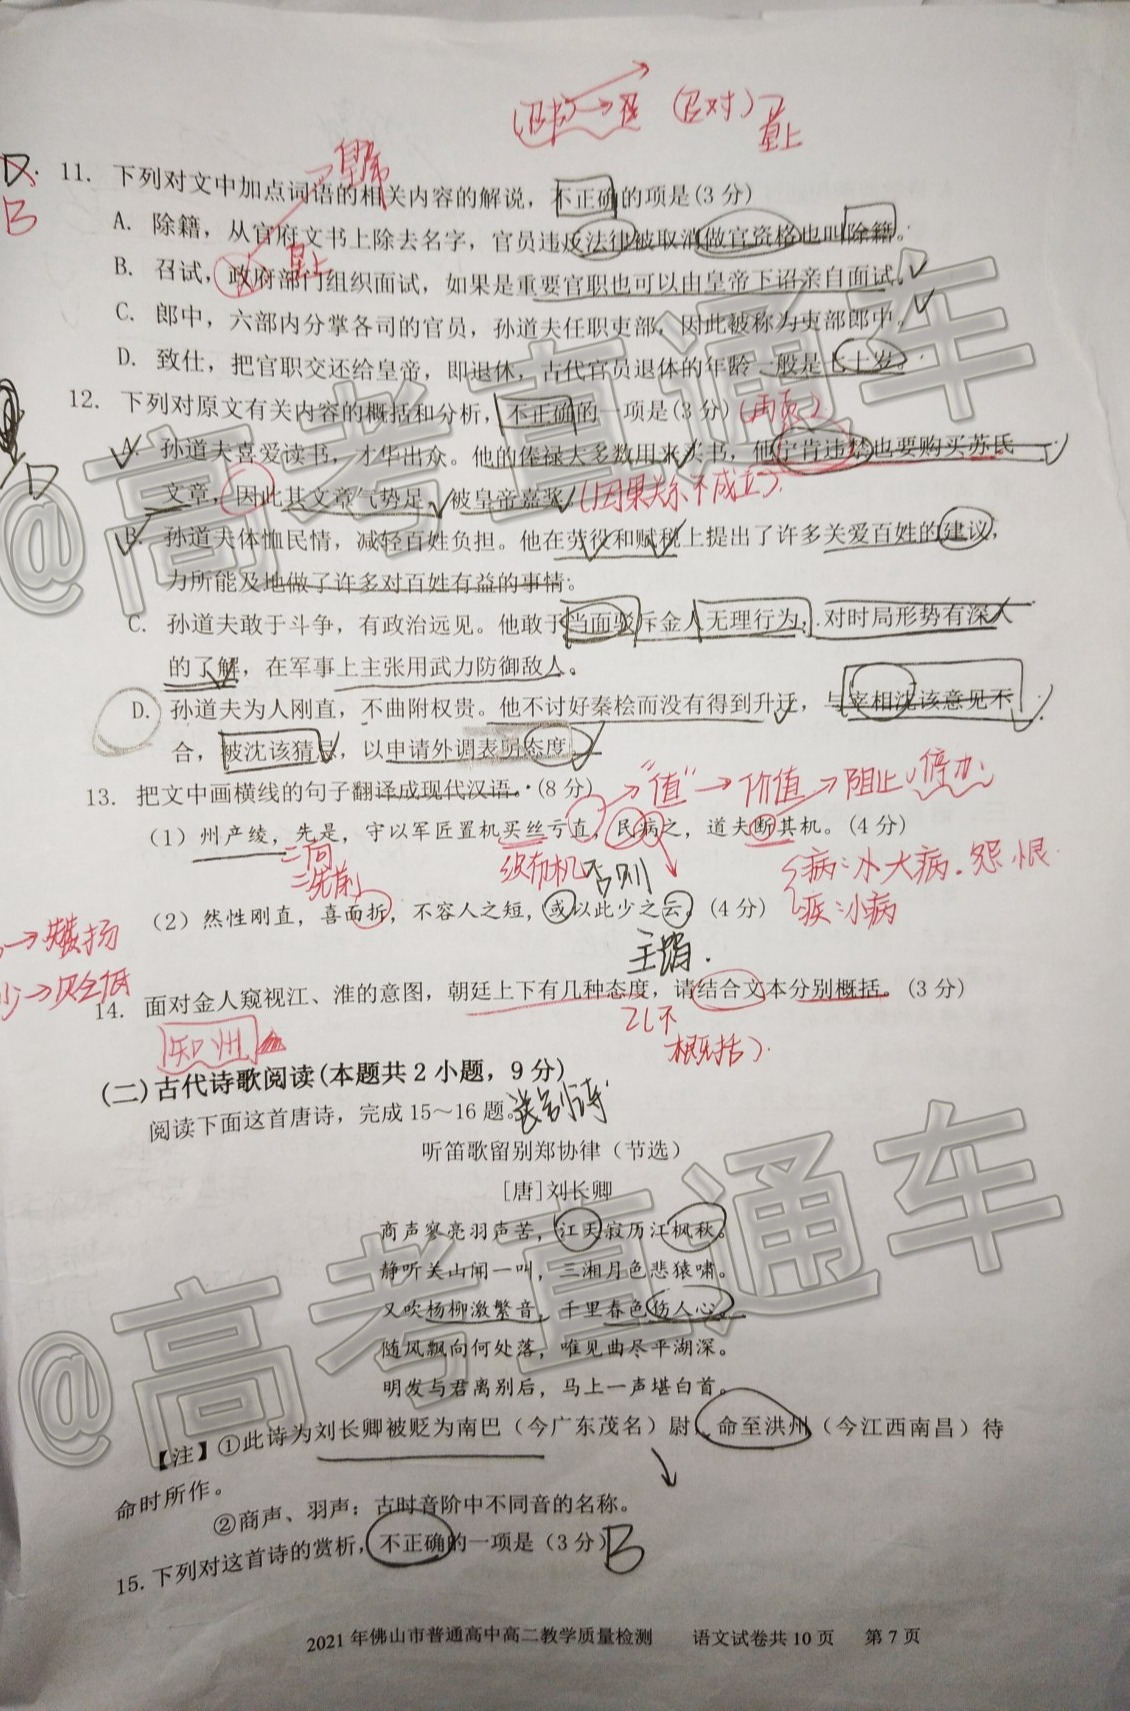 (召书)→召 (召对)→皇上
D
→皇帝
11. 下列对文中加点词语的相关内容的解说，不正确的项是(3分)
B
A. 除籍，从官府文书上除去名字，官员违反法律被取消做官资格也叫除籍。
皇上
B. 召试，政府部门组织面试，如果是重要官职也可以由皇帝下诏亲自面试。
C. 郎中，六部内分掌各司的官员，孙道夫任职吏部，因此被称为吏部郎中。
D. 致仕，把官职交还给皇帝，即退休，古代官员退休的年龄一般是七十岁。
12. 下列对原文有关内容的概括和分析，不正确的一项是(3分)
A. 孙道夫喜爱读书，才华出众。他的俸禄大多数用来买书，他宁肯违禁也要购买苏氏
D
文章，因此其文章气势足，被皇帝嘉奖。(因果关系不成立).
B. 孙道夫体恤民情，减轻百姓负担。他在劳役和赋税上提出了许多关爱百姓的建议，
力所能及地做了许多对百姓有益的事情。
C. 孙道夫敢于斗争，有政治远见。他敢于当面驳斥金人无理行为，对时局形势有深入
的了解，在军事上主张用武力防御敌人。
D. 孙道夫为人刚直，不曲附权贵。他不讨好秦桧而没有得到升迁，与宰相沈该意见不
合，被沈该猜忌，以申请外调表明态度。
13. 把文中画横线的句子翻译成现代汉语。(8分)
→“值”→价值 →阻止
(1) 州产绫，先是，守以军匠置机买丝亏直，民病之，道夫断其机。(4分)
二先前
织布机
否则
病:小大病.怨恨.
疾:小病
(2) 然性刚直，喜面折，不容人之短，或以此少之云。(4分)
→表扬
少→贬低
14. 面对金人窥视江、淮的意图，朝廷上下有几种态度，请结合文本分别概括。(3分)
概括).
知州
(二)古代诗歌阅读(本题共2小题，9分)
阅读下面这首唐诗，完成15～16题。送别诗
听笛歌留别郑协律（节选）
[唐]刘长卿
商声寥亮羽声苦，江天寂历江枫秋。
静听关山闻一叫，三湘月色悲猿啸。
又吹杨柳激繁音，千里春色伤人心。
随风飘向何处落，唯见曲尽平湖深。
明发与君离别后，马上一声堪白首。
【注】①此诗为刘长卿被贬为南巴（今广东茂名）尉，命至洪州（今江西南昌）待
命时所作。
②商声、羽声：古时音阶中不同音的名称。
15. 下列对这首诗的赏析，不正确的一项是（3分）B
2021年佛山市普通高中高二教学质量检测 语文试卷共10页 第7页
@高考直通车
@高考直通车